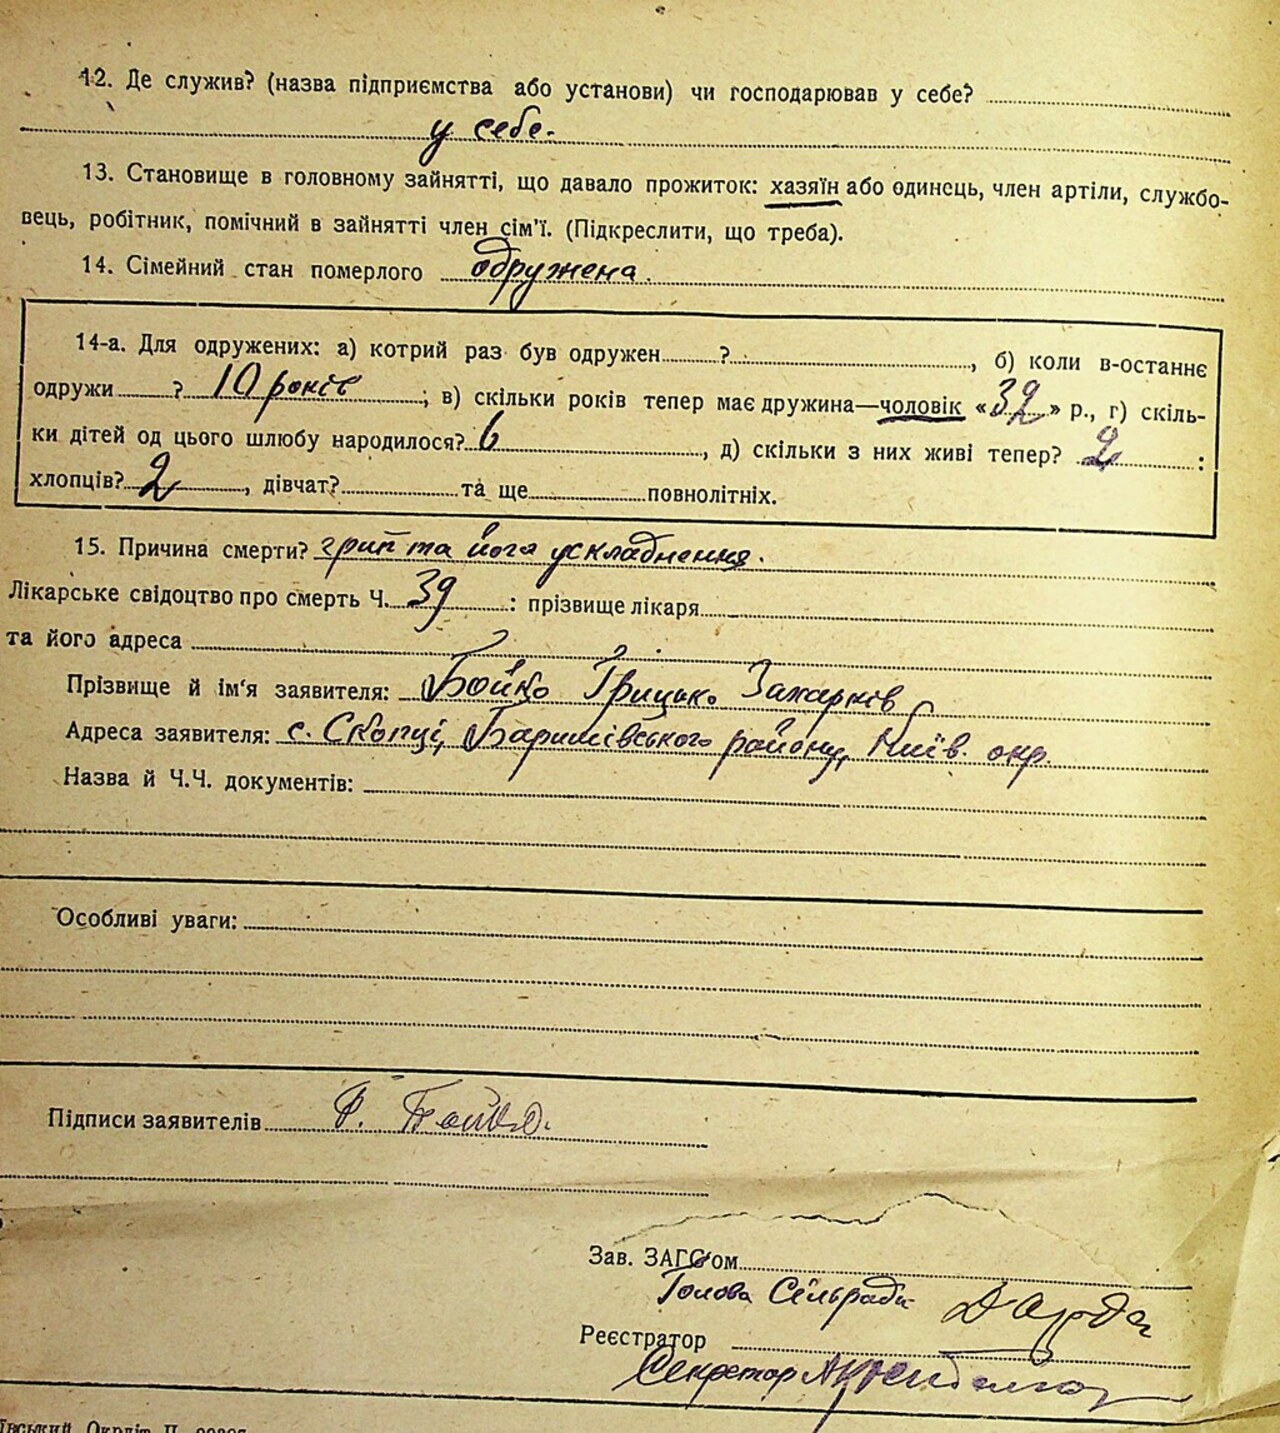 12. Де служив? (назва підприємства або установи) чи господарював у себе?
у себе.
13. Становище в головному зайнятті, що давало прожиток: хазяїн або одинець, член артіли, службо-
вець, робітник, помічний в зайнятті член сім'ї. (Підкреслити, що треба).
14. Сімейний стан померлого одружена.
14-а. Для одружених: а) котрий раз був одружен ? , б) коли в-останнє
одружи ? 10 років ; в) скільки років тепер має дружина—чоловік «32» р., г) скіль-
ки дітей од цього шлюбу народилося? 6 , д) скільки з них живі тепер? 2 :
хлопців? 2 , дівчат? та ще повнолітніх.
15. Причина смерти? грип та його ускладнення.
Лікарське свідоцтво про смерть Ч. 39 : прізвище лікаря
та його адреса
Прізвище й ім'я заявителя: Бойко Грицько Захарків
Адреса заявителя: с. Скопці, Баришівського району, Київ. окр.
Назва й Ч.Ч. документів:
Особливі уваги:
Підписи заявителів Г. Бойко.
Зав. ЗАГС'ом
Голова Сільради
Реєстратор
Секретар
ївський Окрліт П.